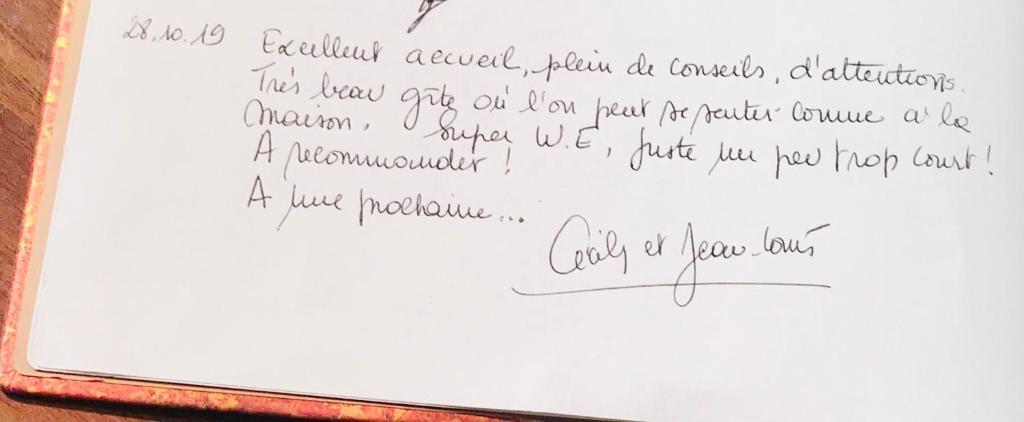 28.10.19 Excellent accueil, plein de conseils, d'attentions.
Très beau gîte où l'on peut se sentir comme à la
maison. Super W.E, juste un peu trop court !
A recommander !
A une prochaine...
Cécily et Jean-Louis